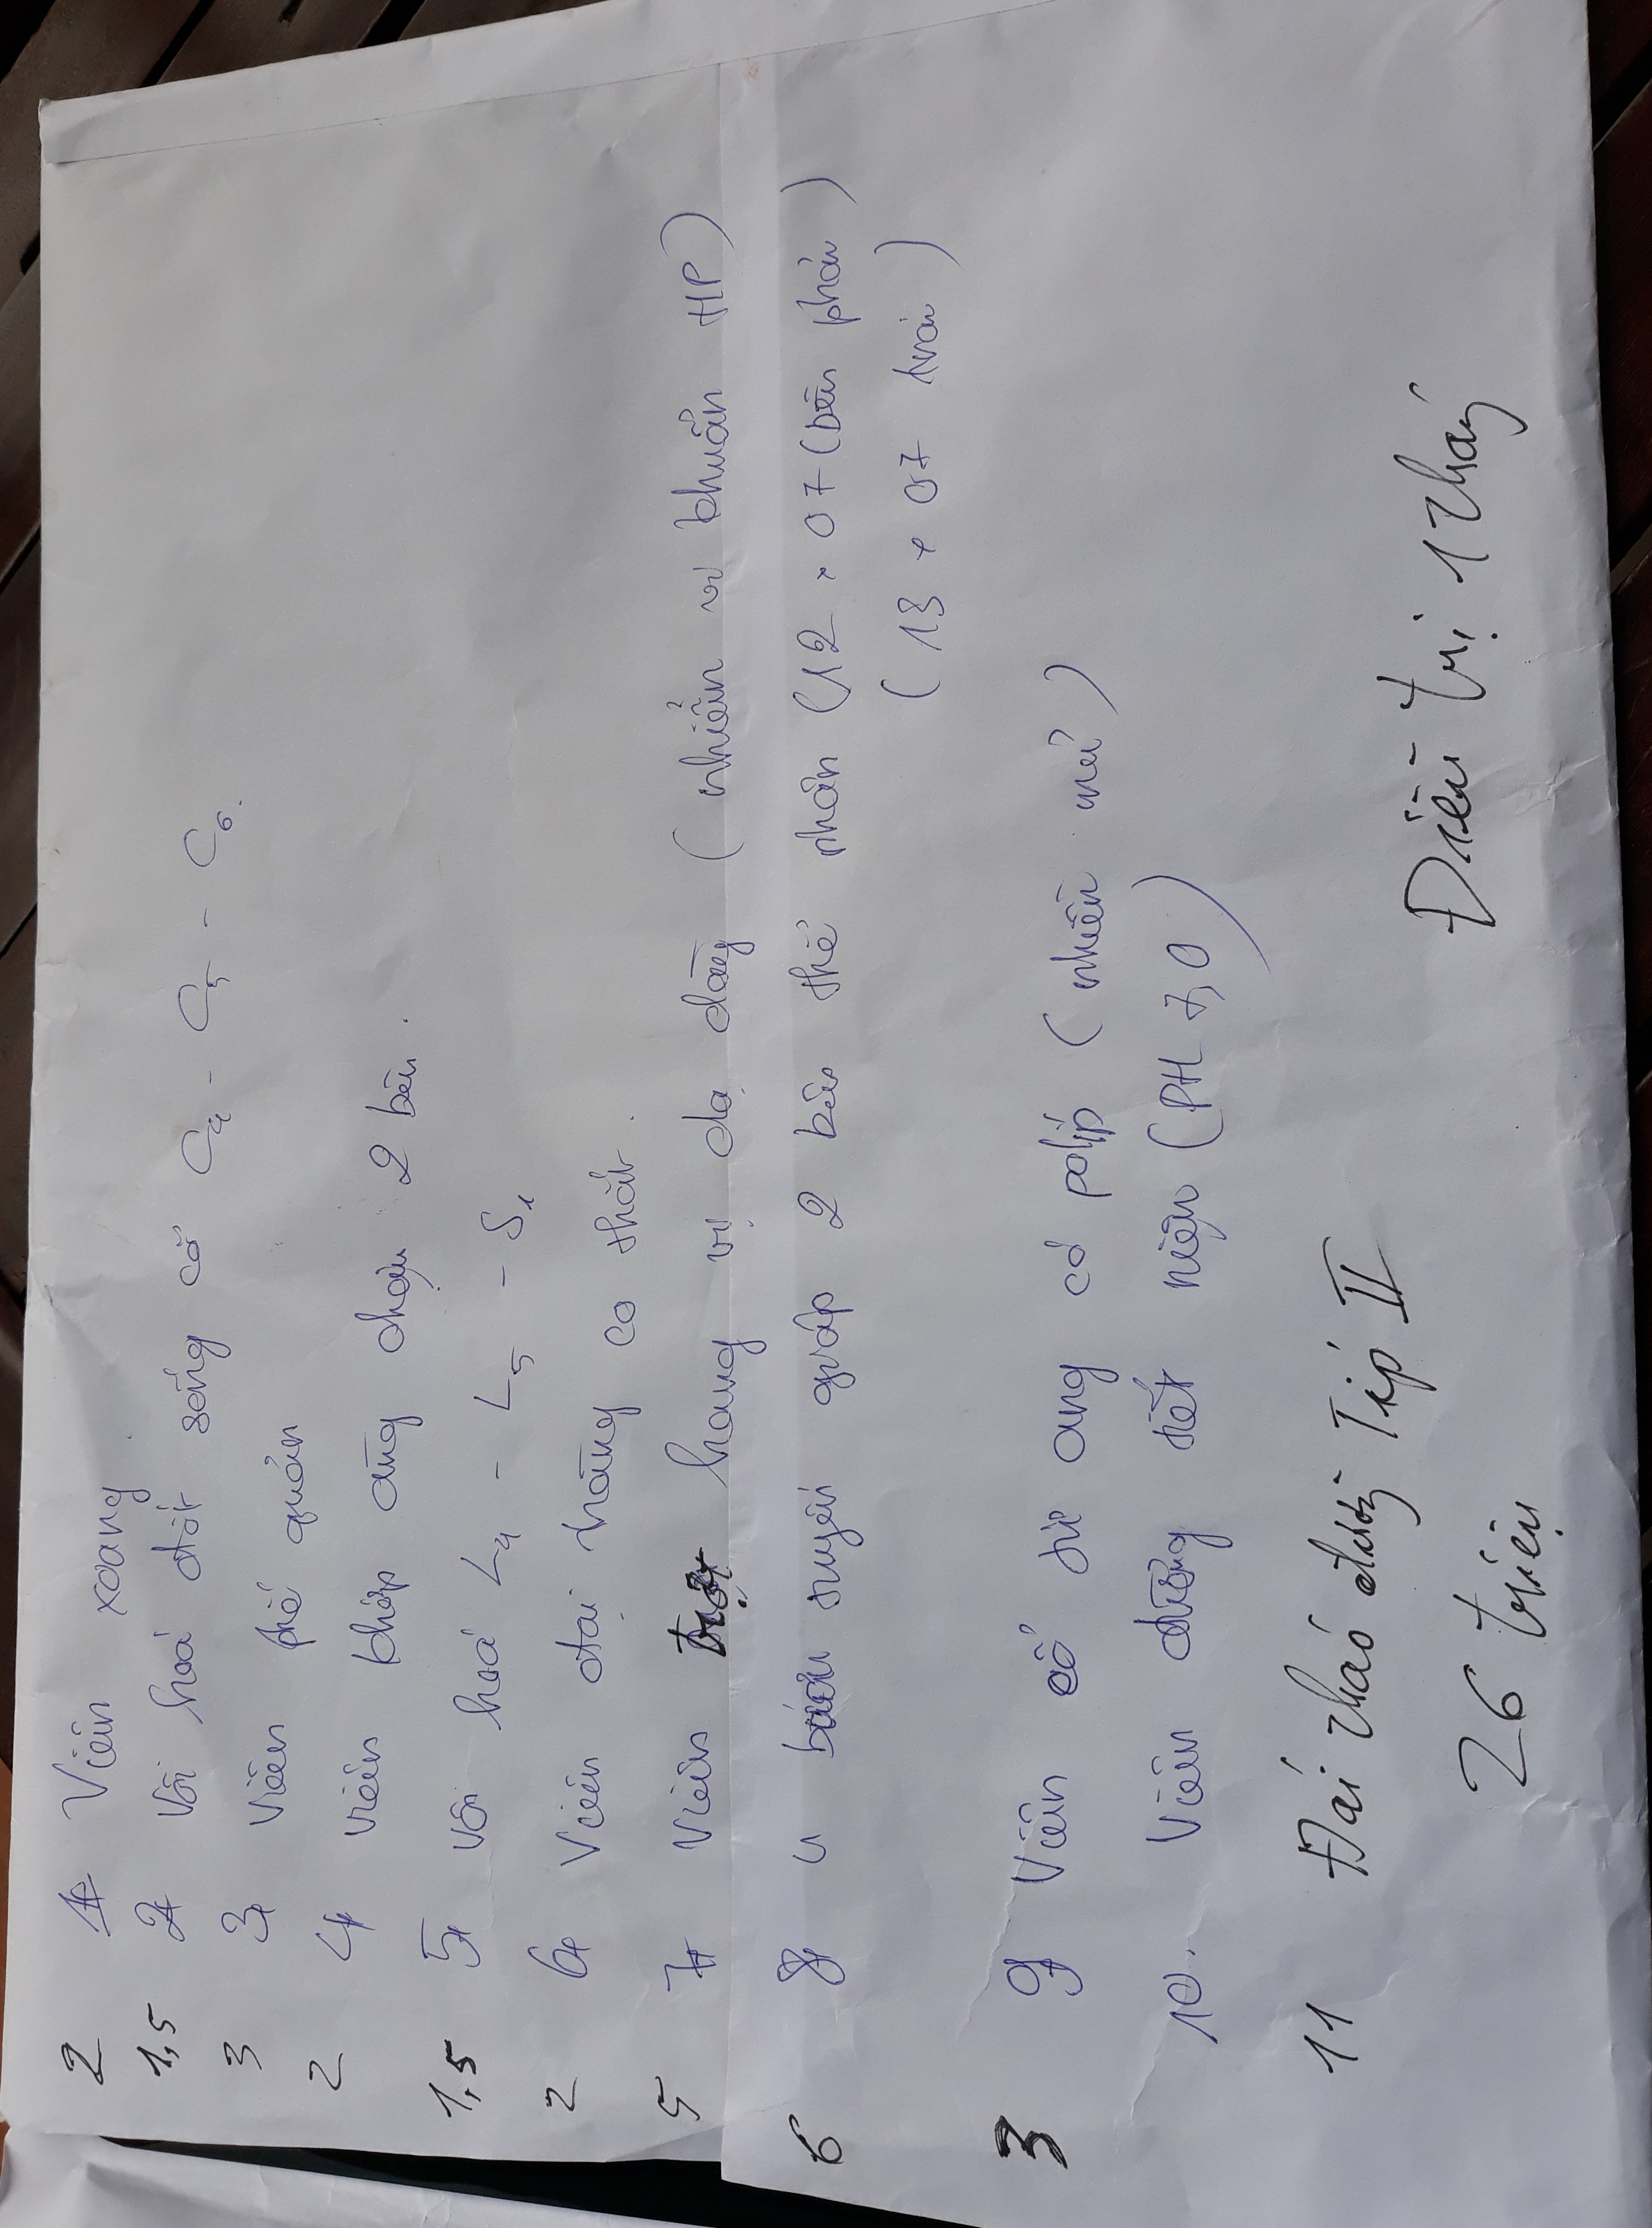 2 1 Viêm xoang
1,5 2 Vôi hoá đốt sống cổ C4 - C5 - C6.
3 3 Viêm phế quản
2 4 Viêm khớp cùng chậu 2 bên.
1,5 5 Vôi hoá L4 - L5 - S1
2 6 Viêm đại tràng co thắt.
5 7 Viêm trợt hang vị dạ dày (nhiễm vi khuẩn HP)
6 8 U bướu tuyến giáp 2 bên thể nhân (12 × 07 (bên phải)
(13 × 07 trái)
3 9 Viêm cổ tử cung có políp (nhiều mủ)
10. Viêm đường tiết niệu (PH 7,0)
11 Đái tháo đường Típ II
26 triệu Điều trị 1 tháng